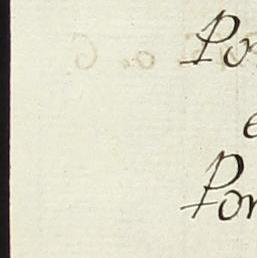 Po
e
Pon